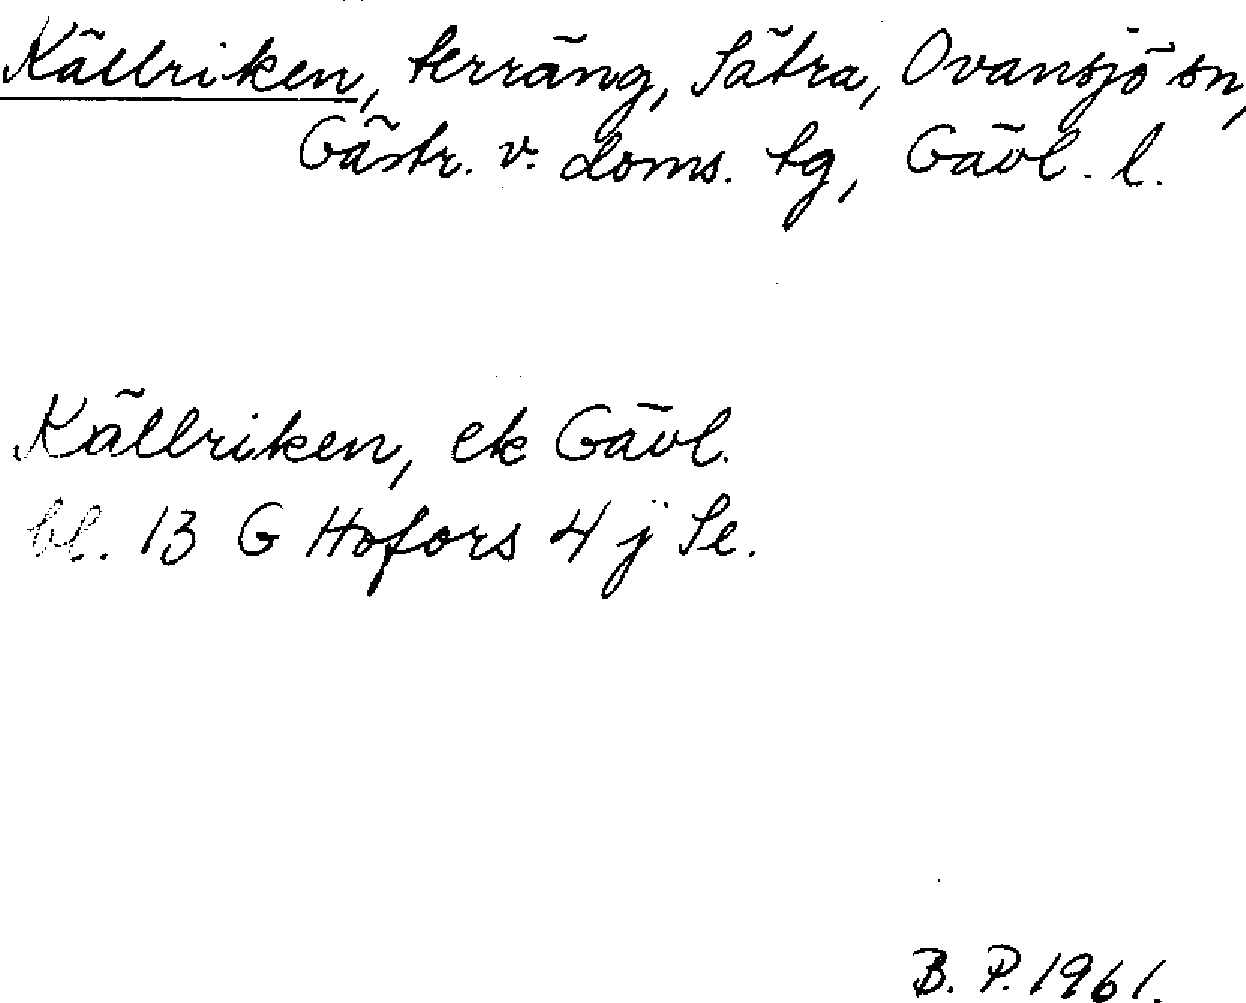 Källriken, terräng, Sätra, Ovansjö sn,
Gästr. v. doms. tg, Gävl. l.
Källriken, ek Gävl.
bl. 13 G Hofors 4 j Se.
B. P. 1961.